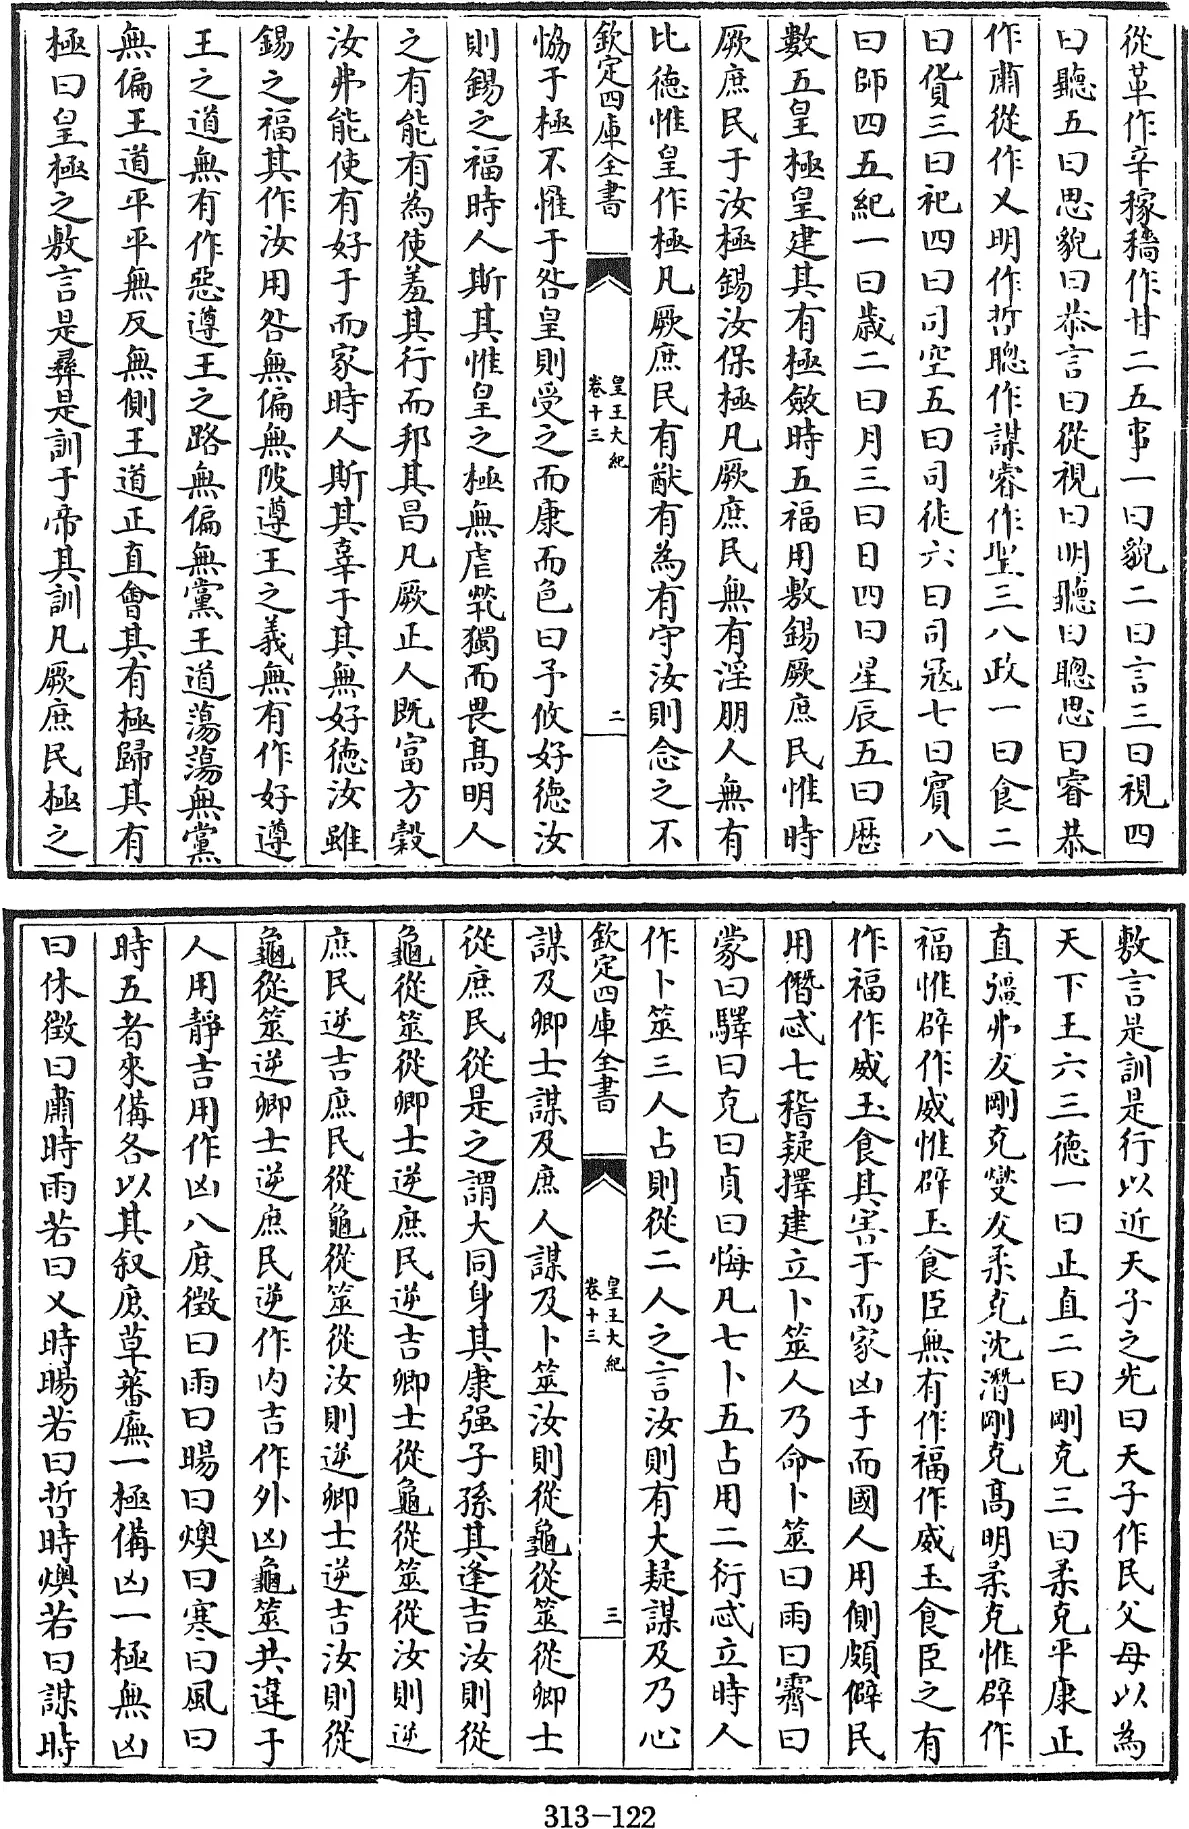 從革作辛稼穡作甘二五事一曰貌二曰言三曰視四
曰聽五曰思貌曰恭言曰從視曰明聽曰聰思曰睿恭
作肅從作乂明作哲聰作謀睿作聖三八政一曰食二
曰貨三曰祀四曰司空五曰司徒六曰司冦七曰賓八
曰師四五紀一曰歲二曰月三曰日四曰星辰五曰歷
數五皇極皇建其有極斂時五福用敷錫厥庶民惟時
厥庶民于汝極錫汝保極凡厥庶民無有淫朋人無有
比德惟皇作極凡厥庶民有猷有為有守汝則念之不
欽定四庫全書
皇王大紀
卷十三
二
恊于極不惟于咎皇則受之而康而色曰予攸好德汝
則錫之福時人斯其惟皇之極無虐煢獨而畏髙明人
之有能有為使羞其行而邦其昌凡厥正人既富方榖
汝弗能使有好于而家時人斯其辜于其無好德汝雖
錫之福其作汝用咎無偏無陂遵王之義無有作好遵
王之道無有作惡遵王之路無偏無黨王道蕩蕩無黨
無偏王道平平無反無側王道正直會其有極歸其有
極曰皇極之敷言是彞是訓于帝其訓凡厥庶民極之
敷言是訓是行以近天子之光曰天子作民父母以為
天下王六三德一曰正直二曰剛克三曰柔克平康正
直彊弗友剛克燮友柔克沈潛剛克髙明柔克惟辟作
福惟辟作威惟辟玉食臣無有作福作威玉食臣之有
作福作威玉食其害于而家凶于而國人用側頗僻民
用僭忒七稽疑擇建立卜筮人乃命卜筮曰雨曰霽曰
蒙曰驛曰克曰貞曰悔凡七卜五占用二衍忒立時人
作卜筮三人占則從二人之言汝則有大疑謀及乃心
欽定四庫全書
皇王大紀
卷十三
三
謀及卿士謀及庶人謀及卜筮汝則從龜從筮從卿士
從庶民從是之謂大同身其康强子孫其逢吉汝則從
龜從筮從卿士逆庶民逆吉卿士從龜從筮從汝則逆
庶民逆吉庶民從龜從筮從汝則逆卿士逆吉汝則從
龜從筮逆卿士逆庶民逆作内吉作外凶龜筮共違于
人用靜吉用作凶八庶徵曰雨曰暘曰燠曰寒曰風曰
時五者來備各以其叙庶草蕃廡一極備凶一極無凶
曰休徵曰肅時雨若曰乂時暘若曰哲時燠若曰謀時
313-122